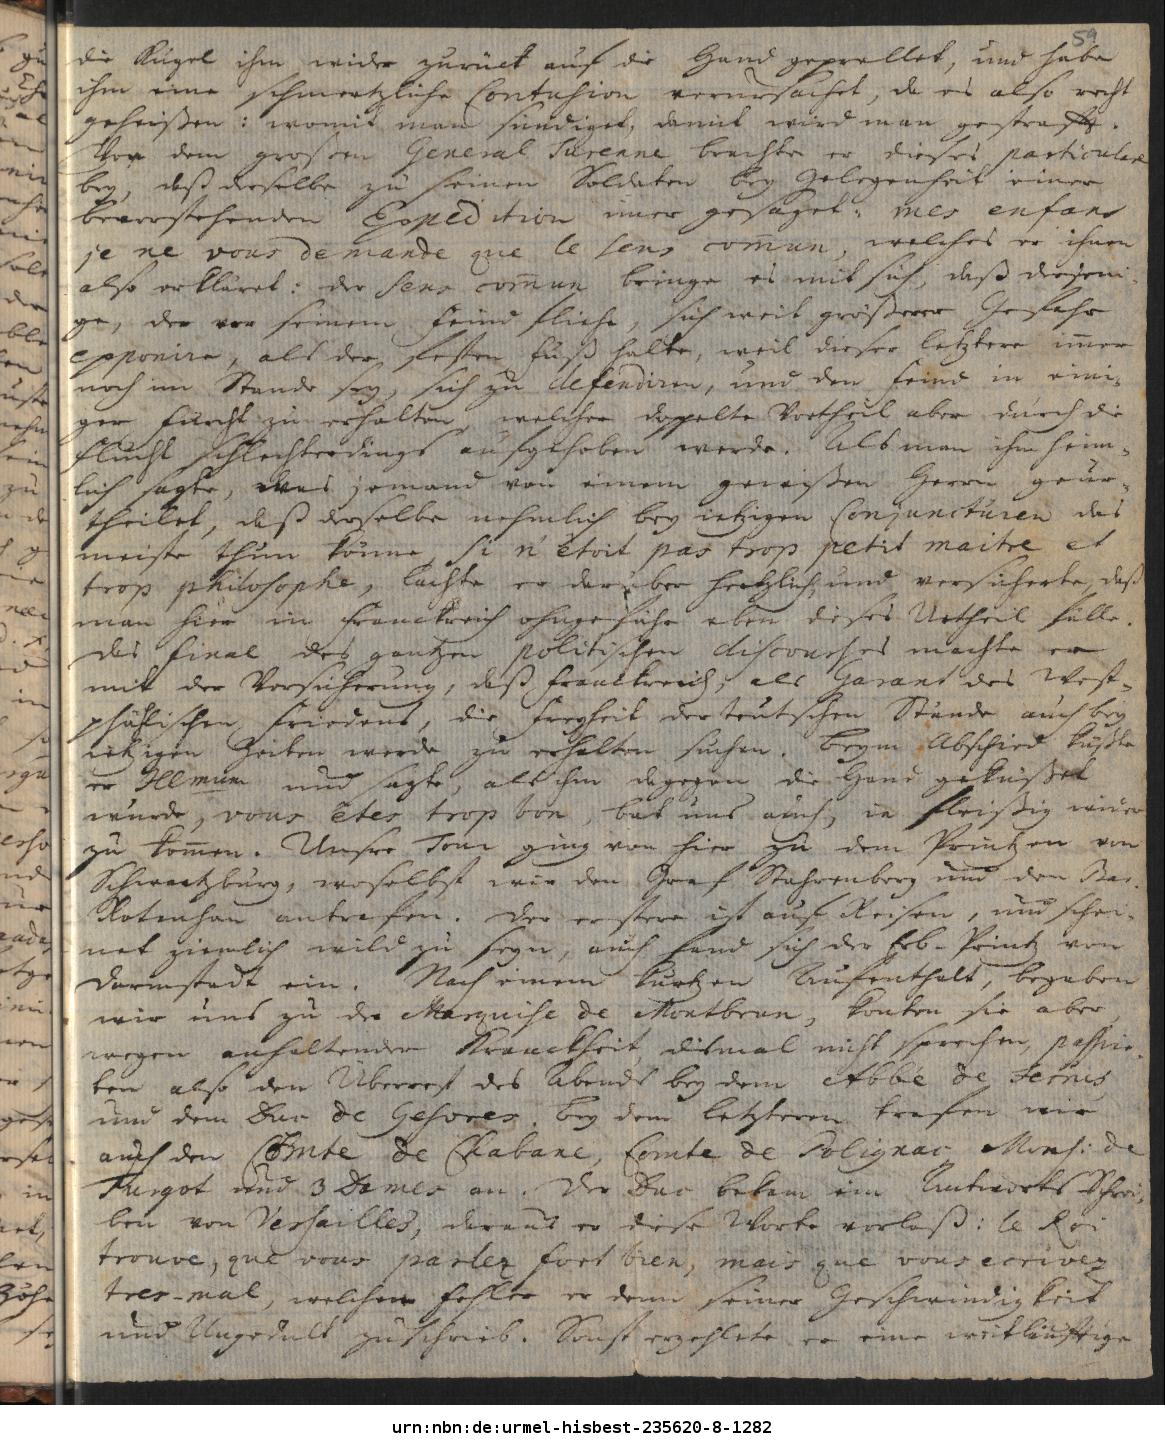 59
die Kugel ihm wider zurück auf die Hand geprellet, und habe
ihm eine schmertzliche Contusion verursachet, da es also recht
geheißen: womit man sündiget, damit wird man gestrafft.
Von dem großen General Turenne brachte er dieses particulare
bey, daß derselbe zu seinen Soldaten bey Gelegenheit einer
bevorstehenden Expedition imer gesaget: mes enfans
je ne vous demande que le sens comun, welches er ihnen
also erkläret: der sens comun bringe es mit sich, daß diejeni-
ge, der vor seinem Feind fliehe, sich weit größerer Gefahr
exponire, als der festen Fuß halte, weil dieser letztere imer
noch im Stande sey, sich zu defendiren, und den Feind in eini-
ger Furcht zu erhalten, welcher doppelte Vortheil aber durch die
Flucht schlechterdings aufgehoben werde. Als man ihm heim-
lich sagte, was jemand von einem gewißen Herrn geur-
theilet, daß derselbe nehmlich bey ietzigen Conjuncturen das
meiste thun könne, si n'étoit pas trop petit maitre et
trop philosophe, lachte er darüber hertzlich, und versicherte, daß
man hier in Franckreich ohngefähr eben dieses Urtheil fälle.
Das final des gantzen politischen discourses machte er
mit der Versicherung, daß Franckreich, als Garant des West-
phälischen Friedens, die Freyheit der teutschen Stände auch bey
ietzigen Zeiten werde zu erhalten suchen. Beym Abschied küßte
er Illmum und sagte, als ihm dagegen die Hand geküßet
wurde, vous êtes trop bon, bat uns auch, ja fleißig wieder
zu komen. Unsre Tour ging von hier zu dem Printzen von
Schwartzburg, woselbst wir den Graf Stahrenberg und den Bar.
Rotenhan antrafen. Der erstere ist auf Reisen, und schei-
net ziemlich wild zu seyn, auch fand sich der Erb-Printz von
Darmstadt ein. Nach einem kurtzen Aufenthalt, begaben
wir uns zu der Marquise de Montbrun, konten sie aber,
wegen anhaltender Kranckheit, dismal nicht sprechen, passir-
ten also den Überrest des Abends bey dem Abbé de Bernis
und dem Duc de Gesvres. Bey dem letzteren trafen wir
auch den Comte de Chabane, Comte de Polignac, Mons: de
Turgot und 3 Dames an. Der Duc bekam ein Antworts Schrei-
ben von Versailles, daraus er diese Worte vorlaß: le Roi
trouve, que vous parlez fort bien, mais que vous ecrivez
tres-mal, welchen Fehler er denn seiner Geschwindigkeit
und Ungedult zuschrieb. Sonst erzehlete er eine weitläufftige
urn:nbn:de:urmel-hisbest-235620-8-1282